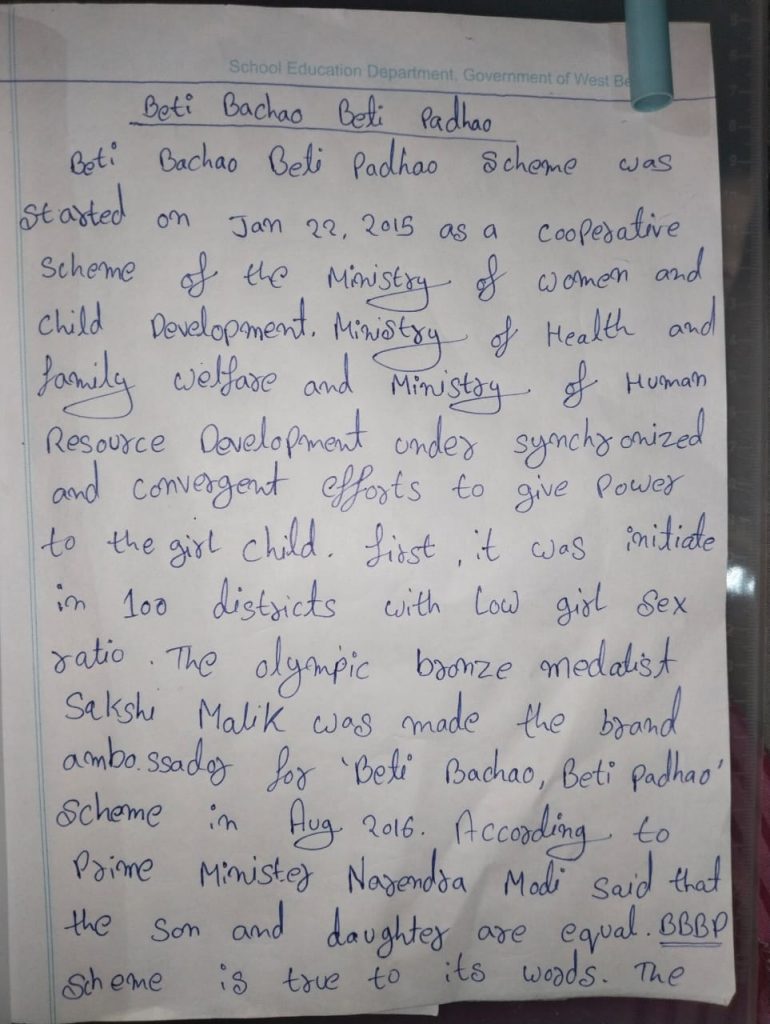 School Education Department, Government of West Be
Beti Bachao Beti Padhao
Beti Bachao Beti Padhao Scheme was
started on Jan 22, 2015 as a cooperative
scheme of the Ministry of women and
child Development. Ministry of Health and
family welfare and Ministry of Human
Resource Development under synchronized
and convergent efforts to give Power
to the girl child. first, it was initiate
in 100 districts with low girl sex
ratio. The olympic bronze medalist
Sakshi Malik was made the brand
ambassador for 'Beti Bachao, Beti Padhao'
scheme in Aug 2016. According to
Prime Minister Narendra Modi said that
the son and daughter are equal. BBBP
scheme is true to its words. The